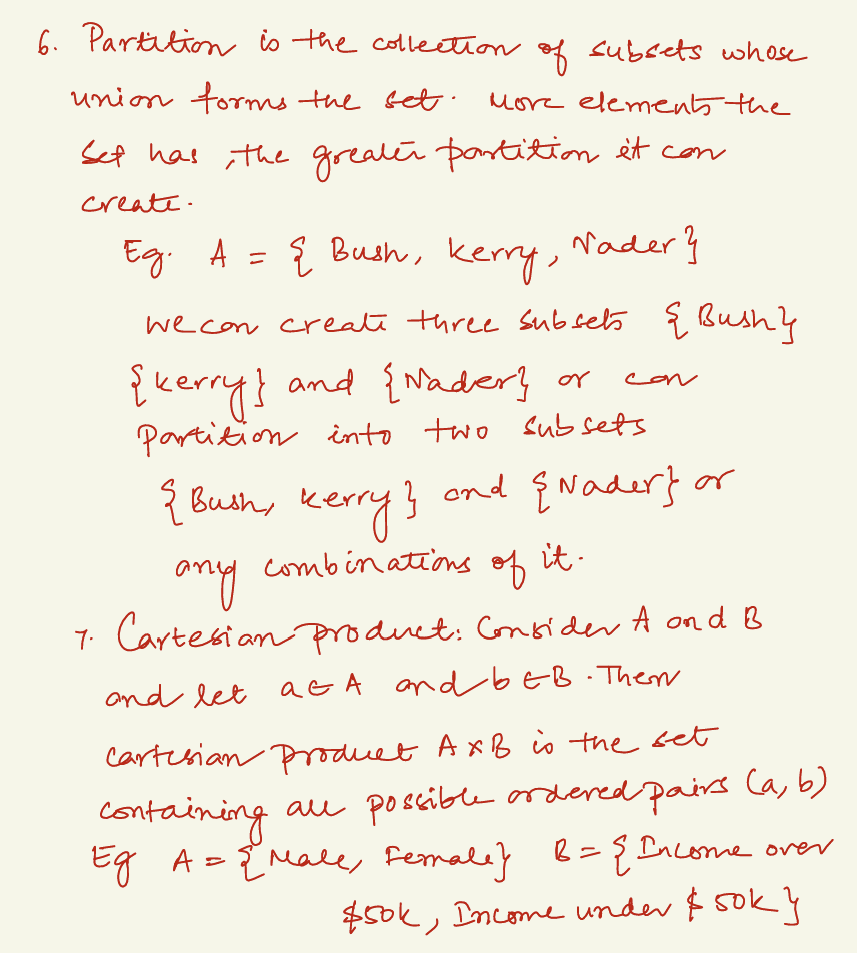 6. Partition is the collection of subsets whose
union forms the set. More elements the
set has, the greater partition it can
create.
Eg. A = { Bush, Kerry, Nader }
We can create three subsets { Bush }
{ Kerry } and { Nader } or can
partition into two subsets
{ Bush, Kerry } and { Nader } or
any combinations of it.
7. Cartesian product: Consider A and B
and let a ∈ A and b ∈ B. Then
cartesian product A × B is the set
containing all possible ordered pairs (a, b)
Eg A = { Male, Female } B = { Income over
$50k, Income under $50k }